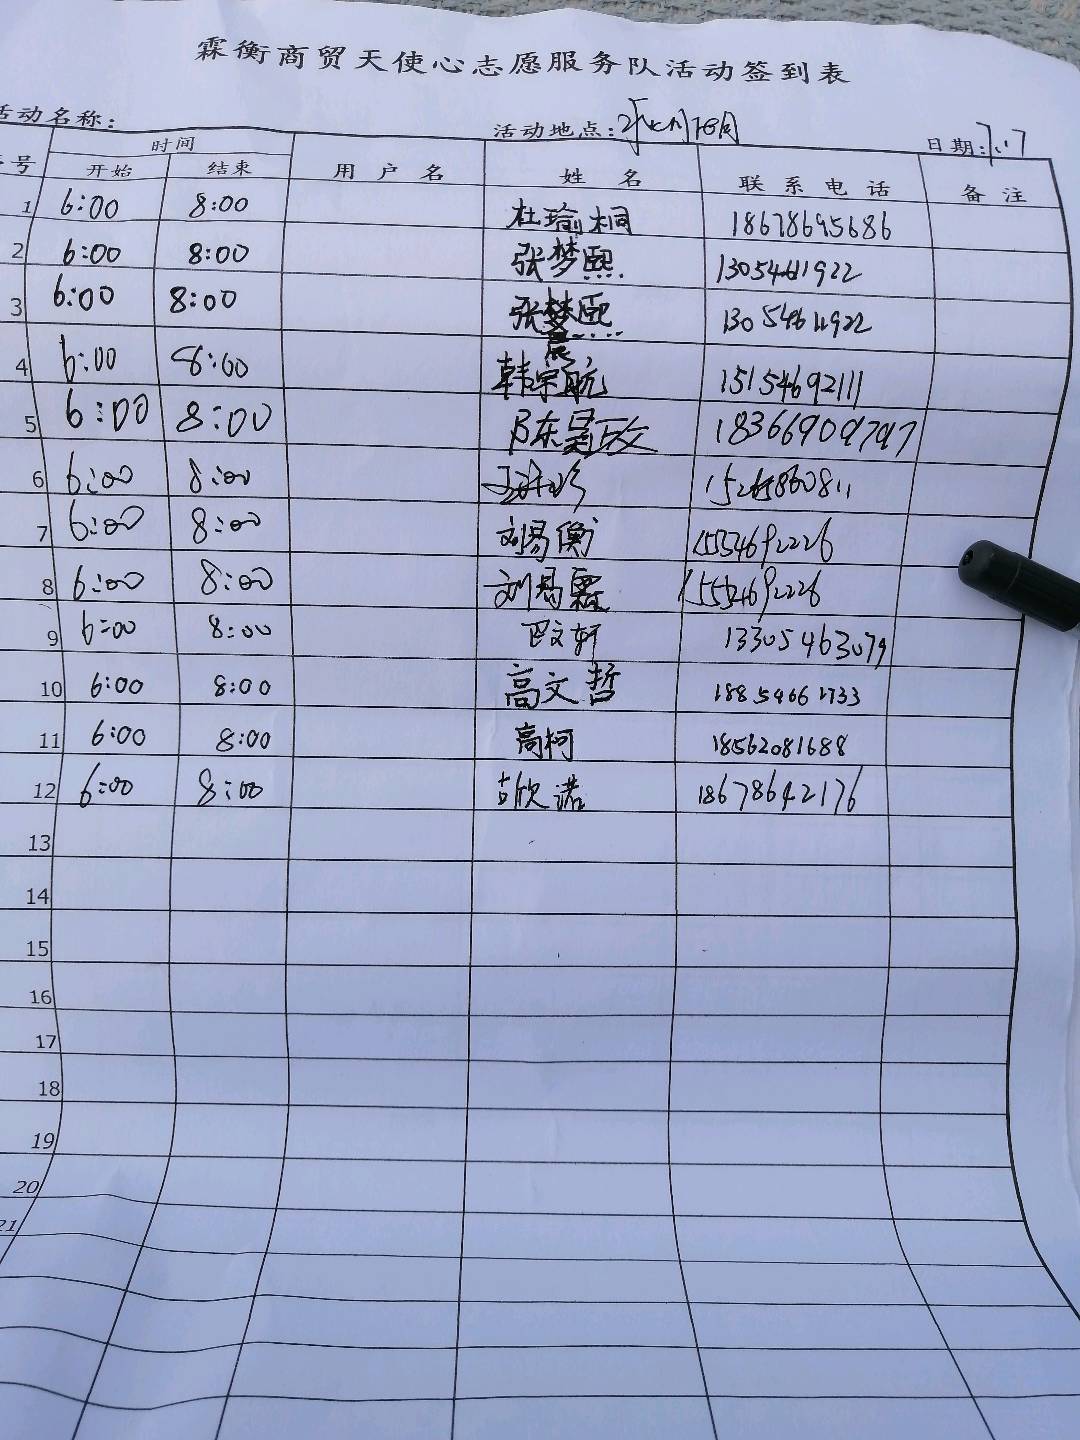 霖衡商贸天使心志愿服务队活动签到表
活动名称： 活动地点： 日期：7.17
序号 时间 用户名 姓名 联系电话 备注
开始 结束
1 6:00 8:00 杜瑜桐 18678695686
2 6:00 8:00 张梦熙 13054611922
3 6:00 8:00 张 13054611922
4 6:00 8:00 韩宗航 15154692111
5 6:00 8:00 18366909797
6 6:00 8:00 15265860811
7 6:00 8:00 刘易衡 15554692226
8 6:00 8:00 刘易霖 15554692226
9 6:00 8:00 巴文轩 13305463079
10 6:00 8:00 高文哲 18854661733
11 6:00 8:00 高柯 18562081688
12 6:00 8:00 彭欣诺 18678642176
13
14
15
16
17
18
19
20
21